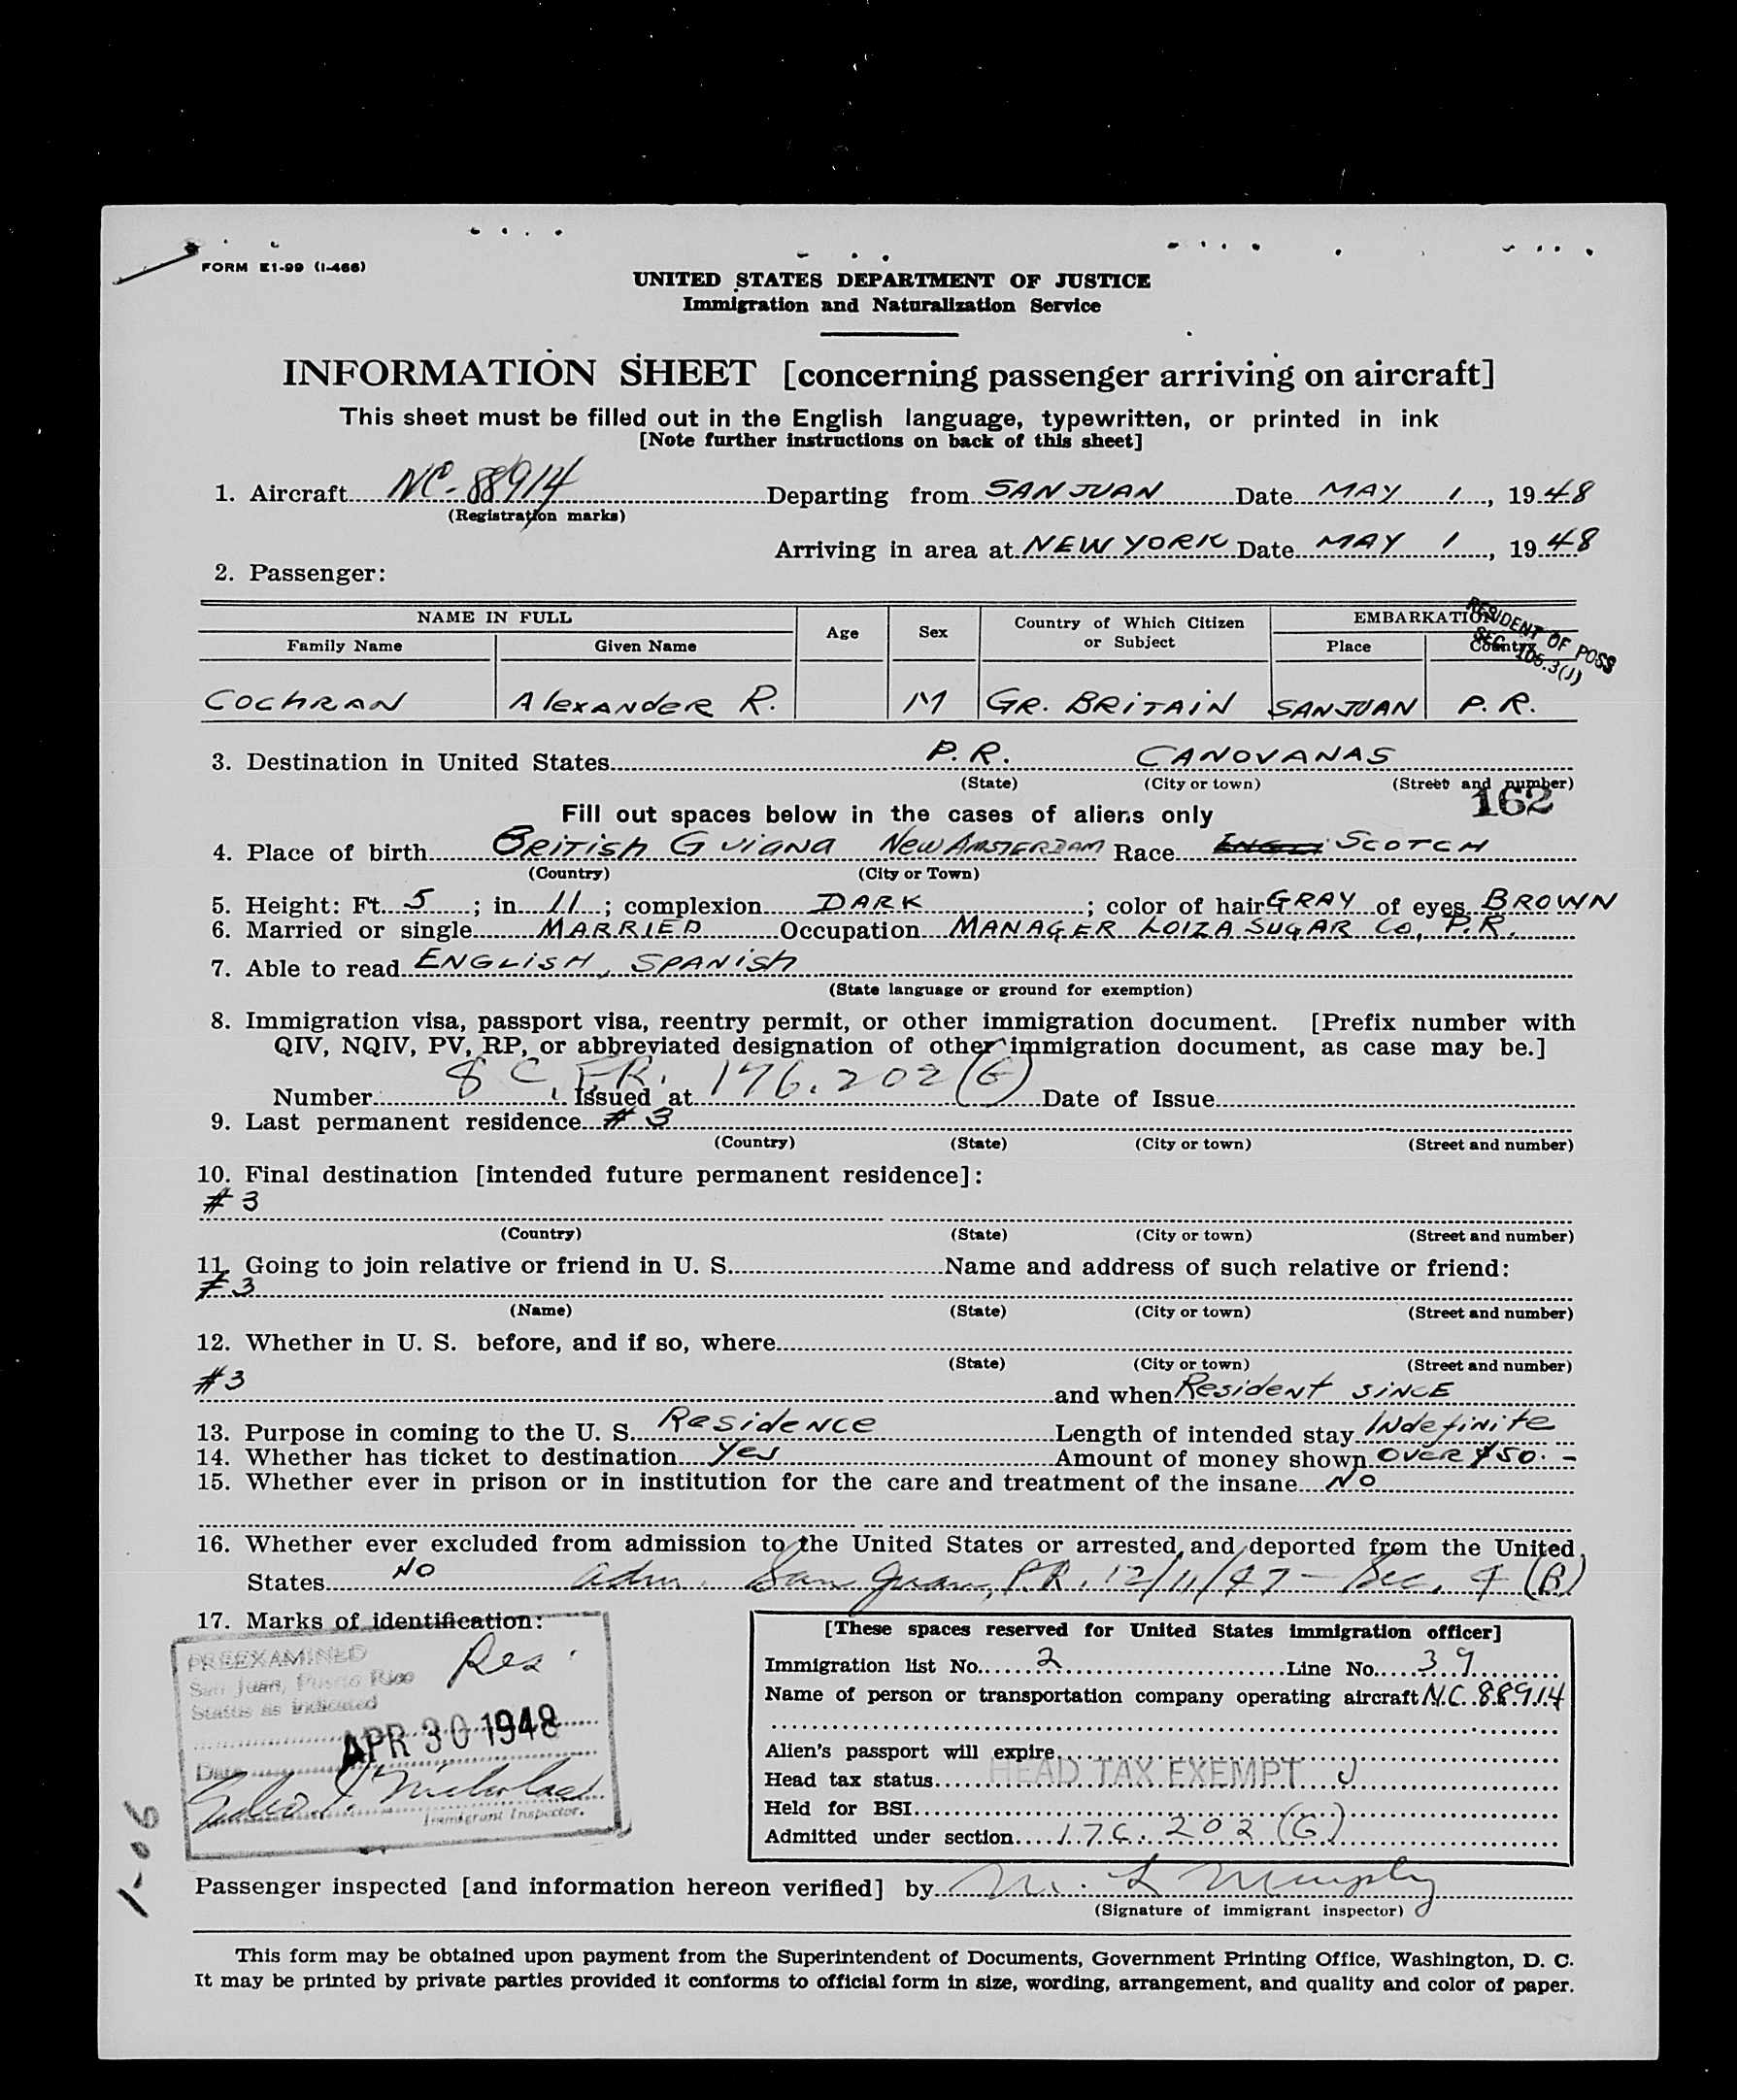 FORM E1-99 (I-466)
UNITED STATES DEPARTMENT OF JUSTICE
Immigration and Naturalization Service
INFORMATION SHEET [concerning passenger arriving on aircraft]
This sheet must be filled out in the English language, typewritten, or printed in ink
[Note further instructions on back of this sheet]
1. Aircraft NC-88914 Departing from SAN JUAN Date MAY 1, 1948
(Registration marks)
Arriving in area at NEW YORK Date MAY 1, 1948
2. Passenger:
NAME IN FULL Age Sex Country of Which Citizen or Subject EMBARKATION
Family Name Given Name Place Country
RESIDENT OF POSS
SEC. 105.3(J)
COCHRAN AlexANdeR R. M GR. BRiTAiN SAN JUAN P.R.
3. Destination in United States P.R. CANOVANAS
(State) (City or town) (Street and number)
162
Fill out spaces below in the cases of aliens only
4. Place of birth BRITish GuianA New AMSTERDAM Race SCOTCH
(Country) (City or Town)
5. Height: Ft. 5; in. 11; complexion DARK; color of hair GRAY of eyes BROWN
6. Married or single MARRIED Occupation MANAGER LOIZA SUGAR Co., P.R.
7. Able to read ENGLISH, SPANISh
(State language or ground for exemption)
8. Immigration visa, passport visa, reentry permit, or other immigration document. [Prefix number with
QIV, NQIV, PV, RP, or abbreviated designation of other immigration document, as case may be.]
8 C.F.R. 176.202(G)
Number Issued at Date of Issue
9. Last permanent residence # 3
(Country) (State) (City or town) (Street and number)
10. Final destination [intended future permanent residence]:
# 3
(Country) (State) (City or town) (Street and number)
11. Going to join relative or friend in U. S. Name and address of such relative or friend:
# 3
(Name) (State) (City or town) (Street and number)
12. Whether in U. S. before, and if so, where
(State) (City or town) (Street and number)
#3 and when Resident SINCE
13. Purpose in coming to the U. S. Residence Length of intended stay INdefiNite
14. Whether has ticket to destination Yes Amount of money shown OVER $50.-
15. Whether ever in prison or in institution for the care and treatment of the insane NO
16. Whether ever excluded from admission to the United States or arrested and deported from the United
States NO adm. San Juan, P.R. 12/11/47 - Sec. 4 (B)
17. Marks of identification:
PREEXAMINED
San Juan, Puerto Rico
Status as indicated
Res.
APR 30 1948
Date
Immigrant Inspector.
[These spaces reserved for United States immigration officer]
Immigration list No. 2 Line No. 39
Name of person or transportation company operating aircraft N.C. 88914
Alien's passport will expire
Head tax status HEAD TAX EXEMPT J
Held for BSI
Admitted under section 176.202(G)
1-06
Passenger inspected [and information hereon verified] by M. L Murphy
(Signature of immigrant inspector)
This form may be obtained upon payment from the Superintendent of Documents, Government Printing Office, Washington, D. C.
It may be printed by private parties provided it conforms to official form in size, wording, arrangement, and quality and color of paper.